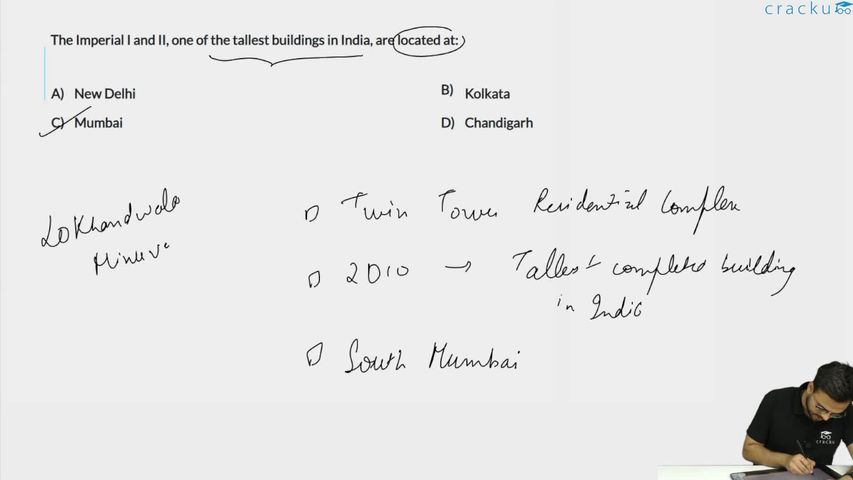 cracku
The Imperial I and II, one of the tallest buildings in India, are located at:
A) New Delhi
B) Kolkata
C) Mumbai
D) Chandigarh
Lokhandwala
Minerva
Twin Tower Residential Complex
2010 → Tallest completed building
in India
South Mumbai
cracku